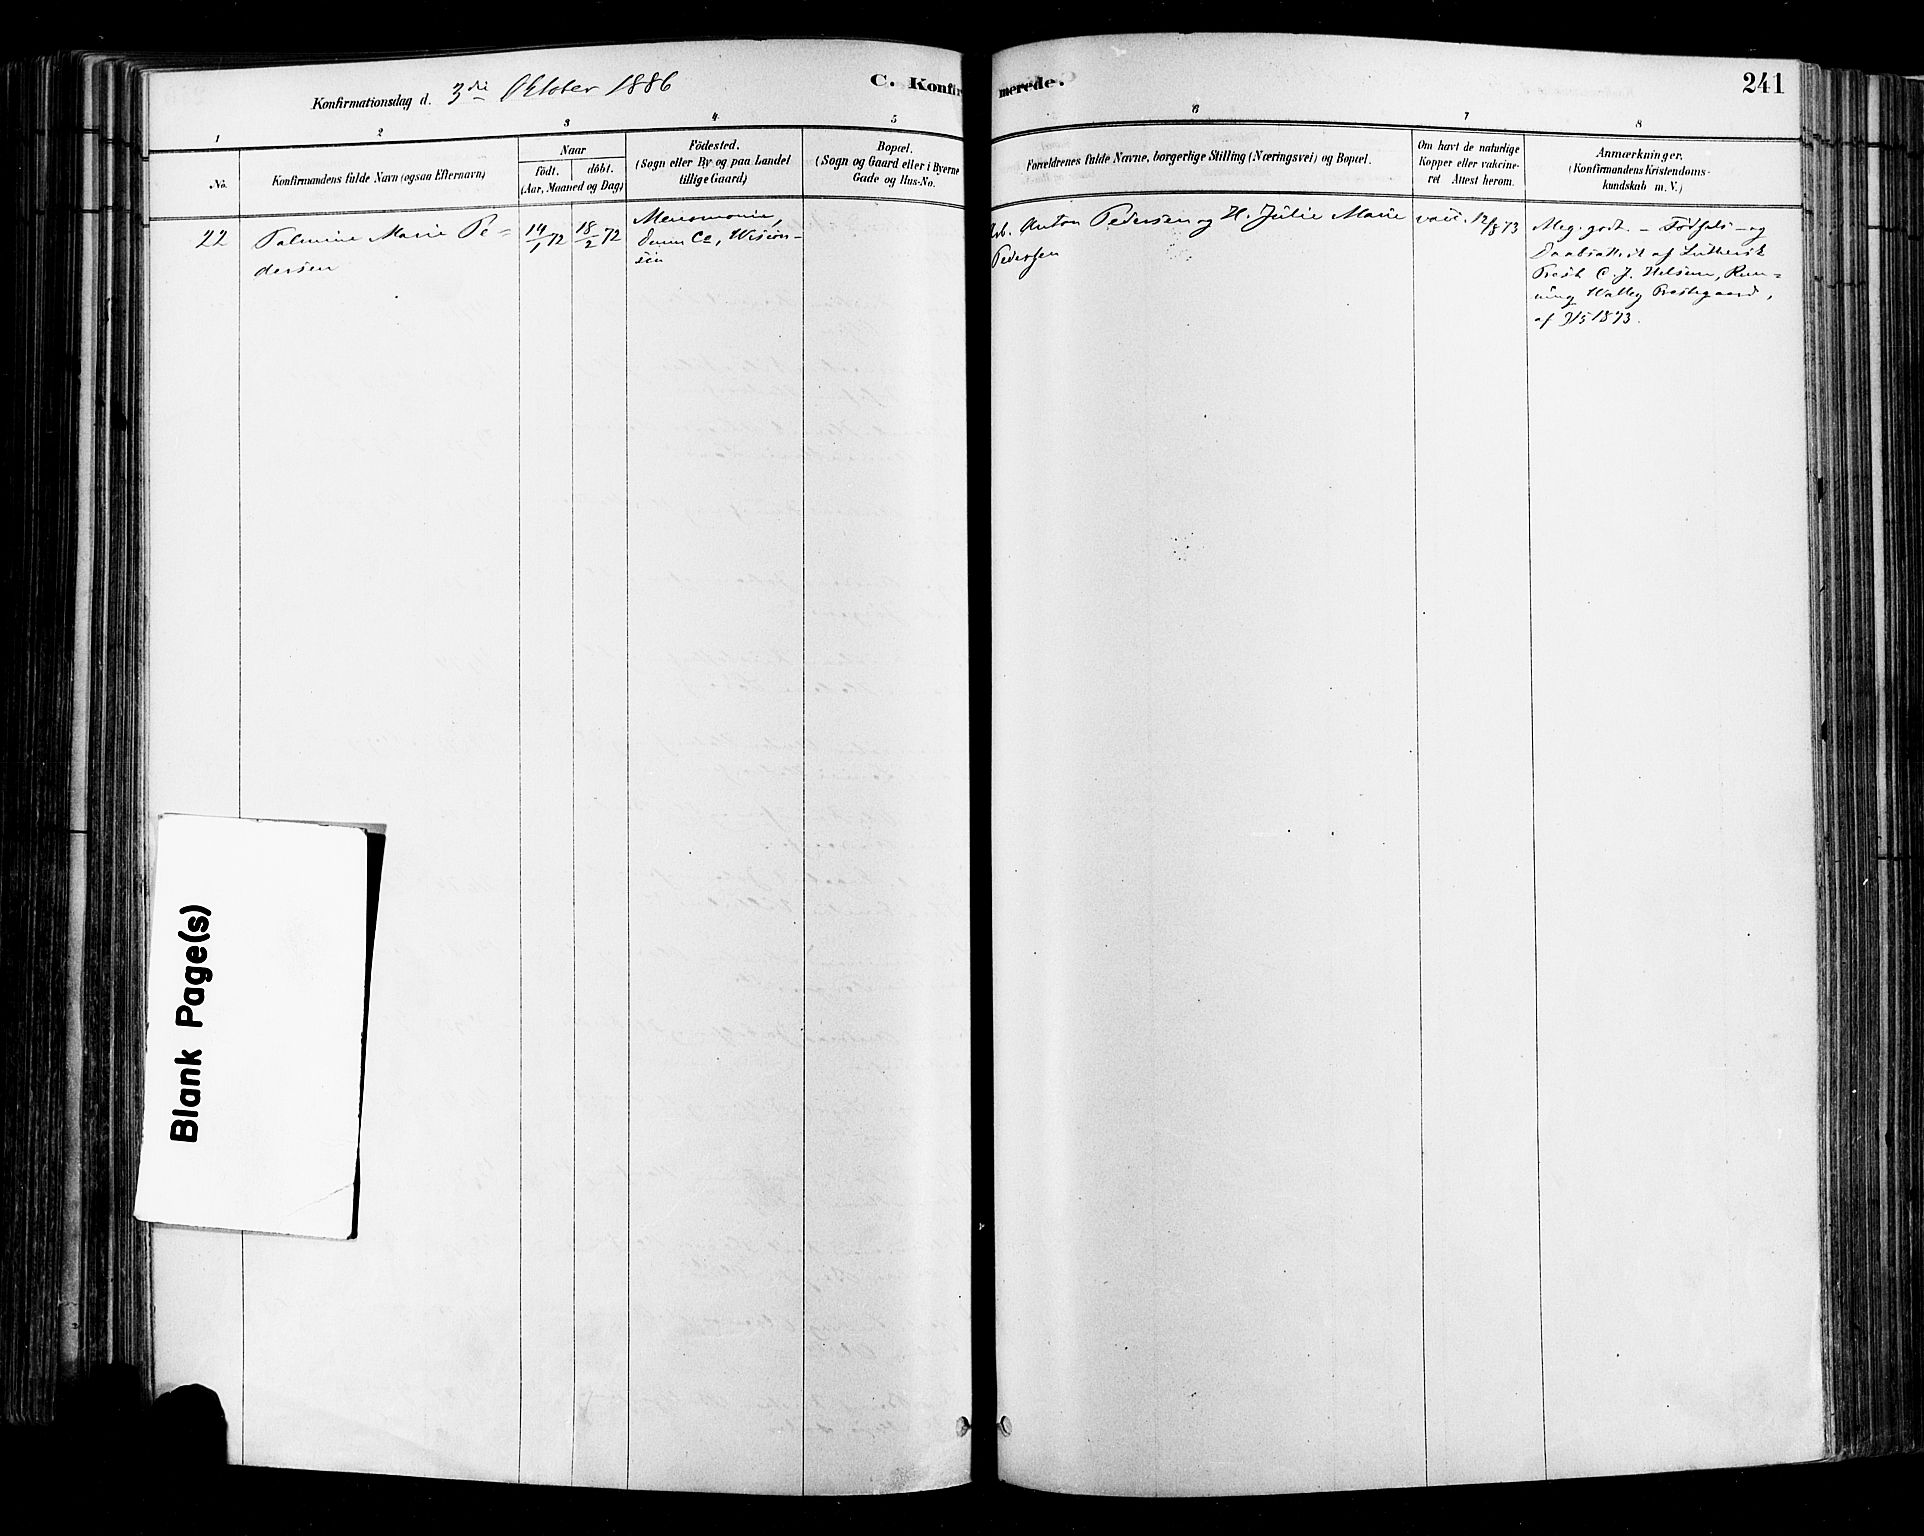 Konfirmationsdag d. 3die Oktober 1886
C. Konfir
merede.
241
1
2
3
4
5
6
7
8
No.
Konfirmandens fulde Navn (ogsaa Efternavn)
Naar
födt.
döbt.
(Aar, Maaned og Dag)
Födested.
(Sogn eller By og paa Landet
tillige Gaard)
Bopæl.
(Sogn og Gaard eller i Byerne
Gade og Hus-No.
Forældrenes fulde Navne, borgerlige Stilling (Næringsvei) og Bopæl.
Om havt de naturlige
Kopper eller vakcine-
ret Attest herom.
Anmærkninger.
(Konfirmandens Kristendoms-
kundskab m. V.)
22
Palmine Marie Pe-
dersen
14/1 72
18/2 72
Menomonie,
Dunn Co, Wiscon-
sin
Arb. Anton Pedersen og H. Julie Marie
Pedersen
vacc. 12/8 73
Meg. godt. - Födsels- og
Daabsattest af Luthersk
Prest C. J. Helsem, Run-
ning Walley Prestegaard,
af 9/5 1873.
Blank Page(s)